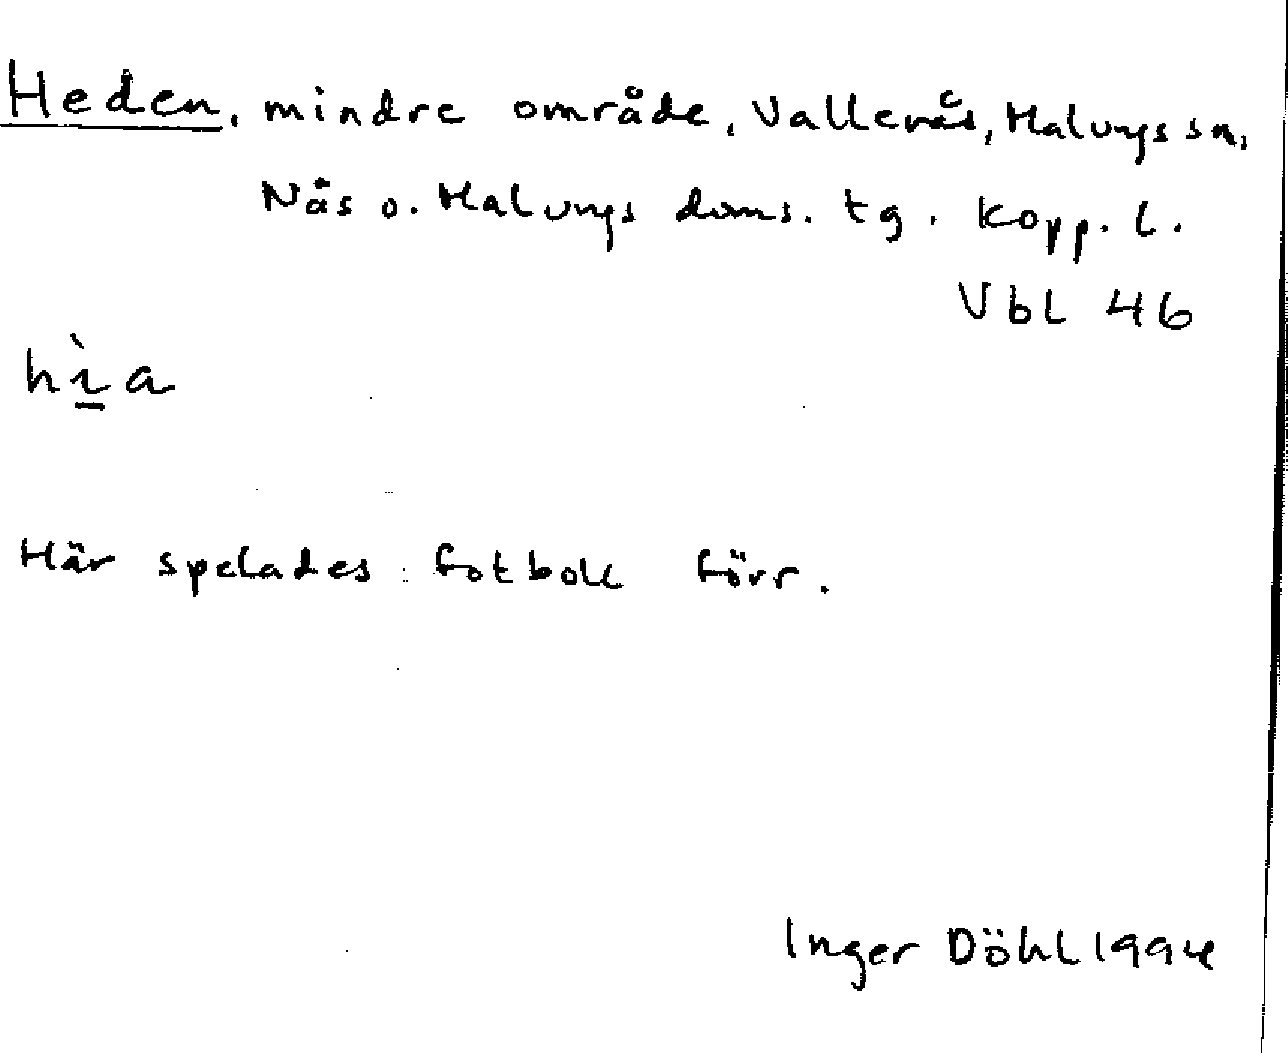 Heden, mindre område, Vallerås, Malungs sn,
Nås o. Malungs doms. tg. Kopp. l.
Vbl 46
hı̠̀a
Här spelades fotboll förr.
Inger Döhl 1994